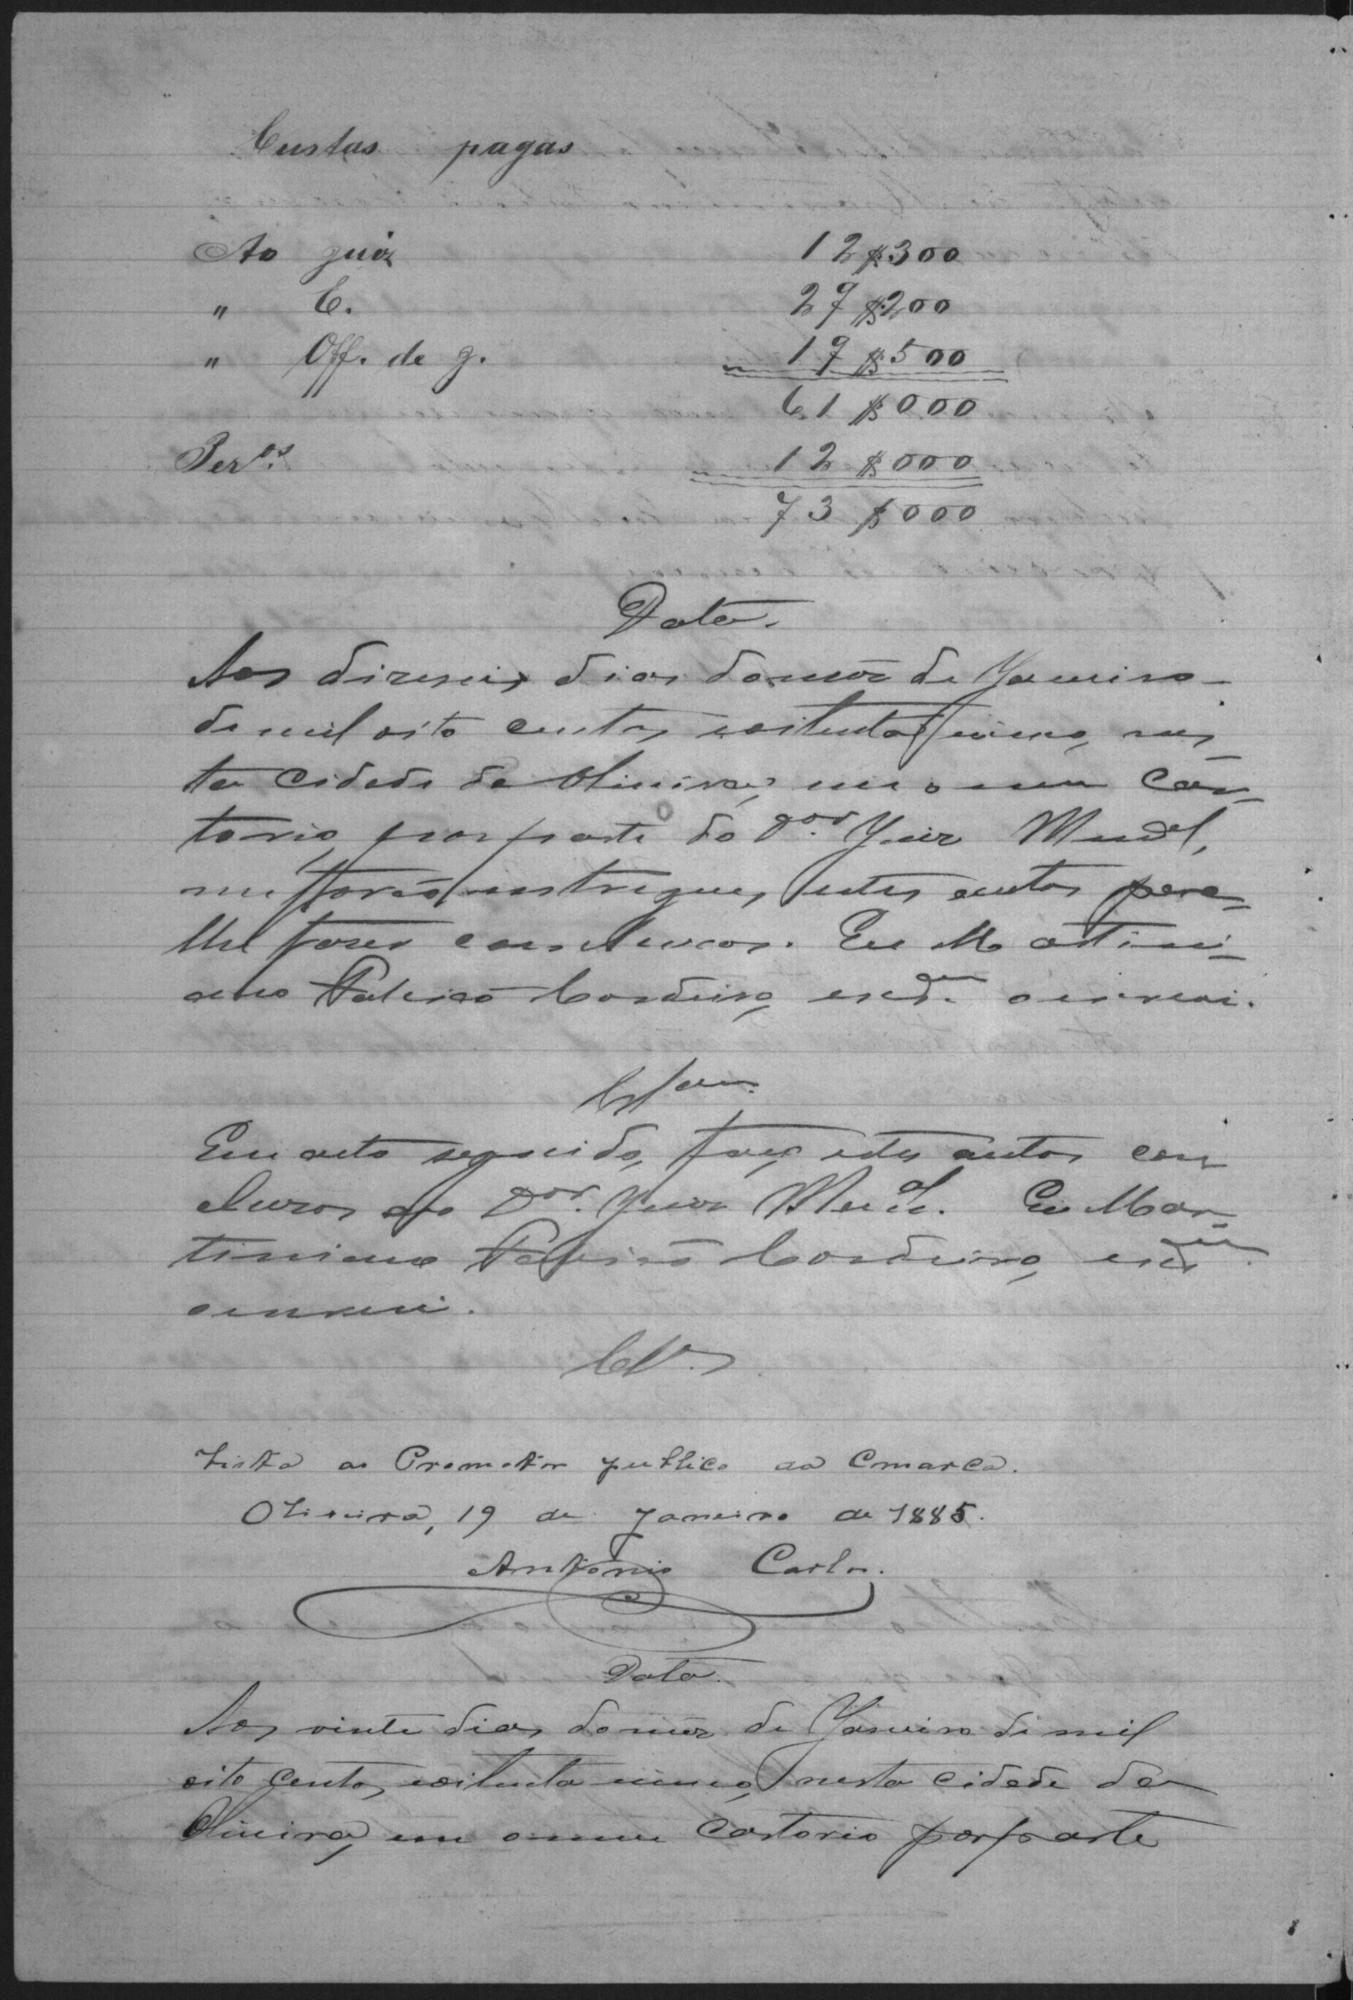 Custas pagas
Ao juiz 12$300
" E. 29$200
" Off. de j. 19$500
61$000
Per.os 12$000
73$000
Data.
Aos diseseis dias do mes de Janeiro
de mil oito centos eoitenta e cinco, nes
ta cidade de Oliveira, em o meu Car-
torio, por parte do Dor. Juiz Mun.al,
me forão entregues, estes autos para
lhe fazer conclusos. Eu Martini-
ano Cordeiro, escr.am o escrevi.
Clsam.
Em acto seguido, faço estes autos con
clusos ao Dor. Juiz Mun.al. Eu Mar-
tiniano Cordeiro, escr.am
o escrevi.
Cls.
Vista ao Promotor publico da Comarca.
Oliveira, 19 de Janeiro de 1885.
Antonio Carlos.
Data.
Aos vinte dias do mes de Janeiro de mil
oito centos, eoitenta e cinco, nesta cidade de
Oliveira, em o meu Cartorio por parte